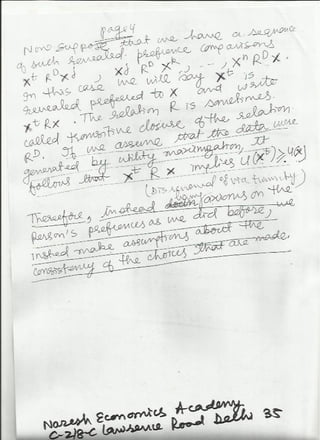 page 4
Now suppose that we have a sequence
of such revealed preference comparisons
xᵗ Rᴰ xʲ, xʲ Rᴰ xᵏ, ..., xⁿ Rᴰ x.
In this case we will say xᵗ is
revealed preferred to x and write
xᵗ R x. The relation R is sometimes
called transitive closure of the relation
Rᴰ. If we assume that the data were
generated by utility maximization, it
follows that xᵗ R x implies u(xᵗ) ≥ u(x)
Therefore, instead being axioms on the
Person's preferences as we did before, we
insted make assumptions about the
consistency of the choices that are made.
Naresh Economics Academy
C-2/8-C Lawrence Road Delhi 35